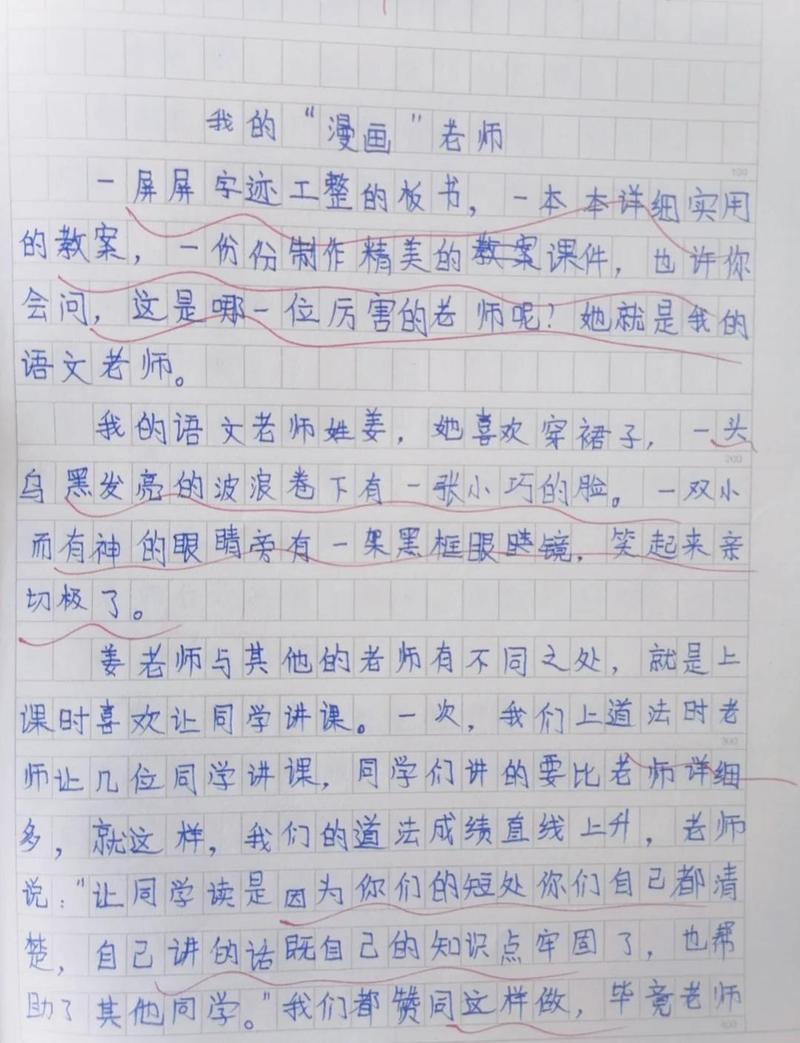 我的“漫画”老师
一屏屏字迹工整的板书，一本本详细实用
的教案，一份份制作精美的教案课件，也许你
会问，这是哪一位厉害的老师呢？她就是我的
语文老师。
我的语文老师姓姜，她喜欢穿裙子，一头
乌黑发亮的波浪卷下有一张小巧的脸。一双小
而有神的眼睛旁有一架黑框眼睛镜，笑起来亲
切极了。
姜老师与其他的老师有不同之处，就是上
课时喜欢让同学讲课。一次，我们上道法时老
师让几位同学讲课，同学们讲的要比老师详细
多，就这样，我们的道法成绩直线上升，老师
说：“让同学读是因为你们的短处你们自己都清
楚，自己讲的话既自己的知识点牢固了，也帮
助了其他同学。”我们都赞同这样做，毕竟老师
100
200
300
400